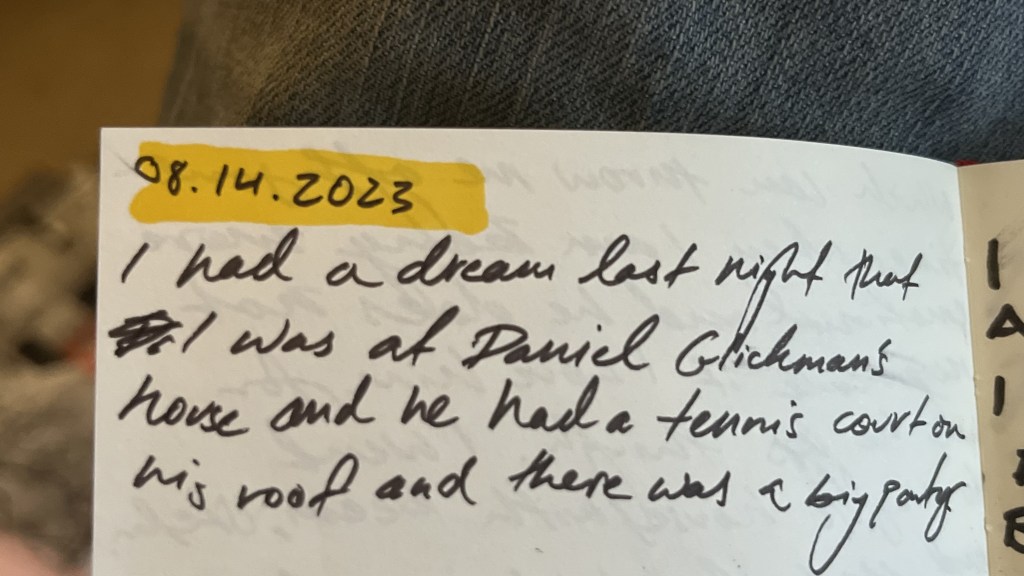 08.14.2023
I had a dream last night that
I was at Daniel Glickman's
house and he had a tennis court on
his roof and there was a big party